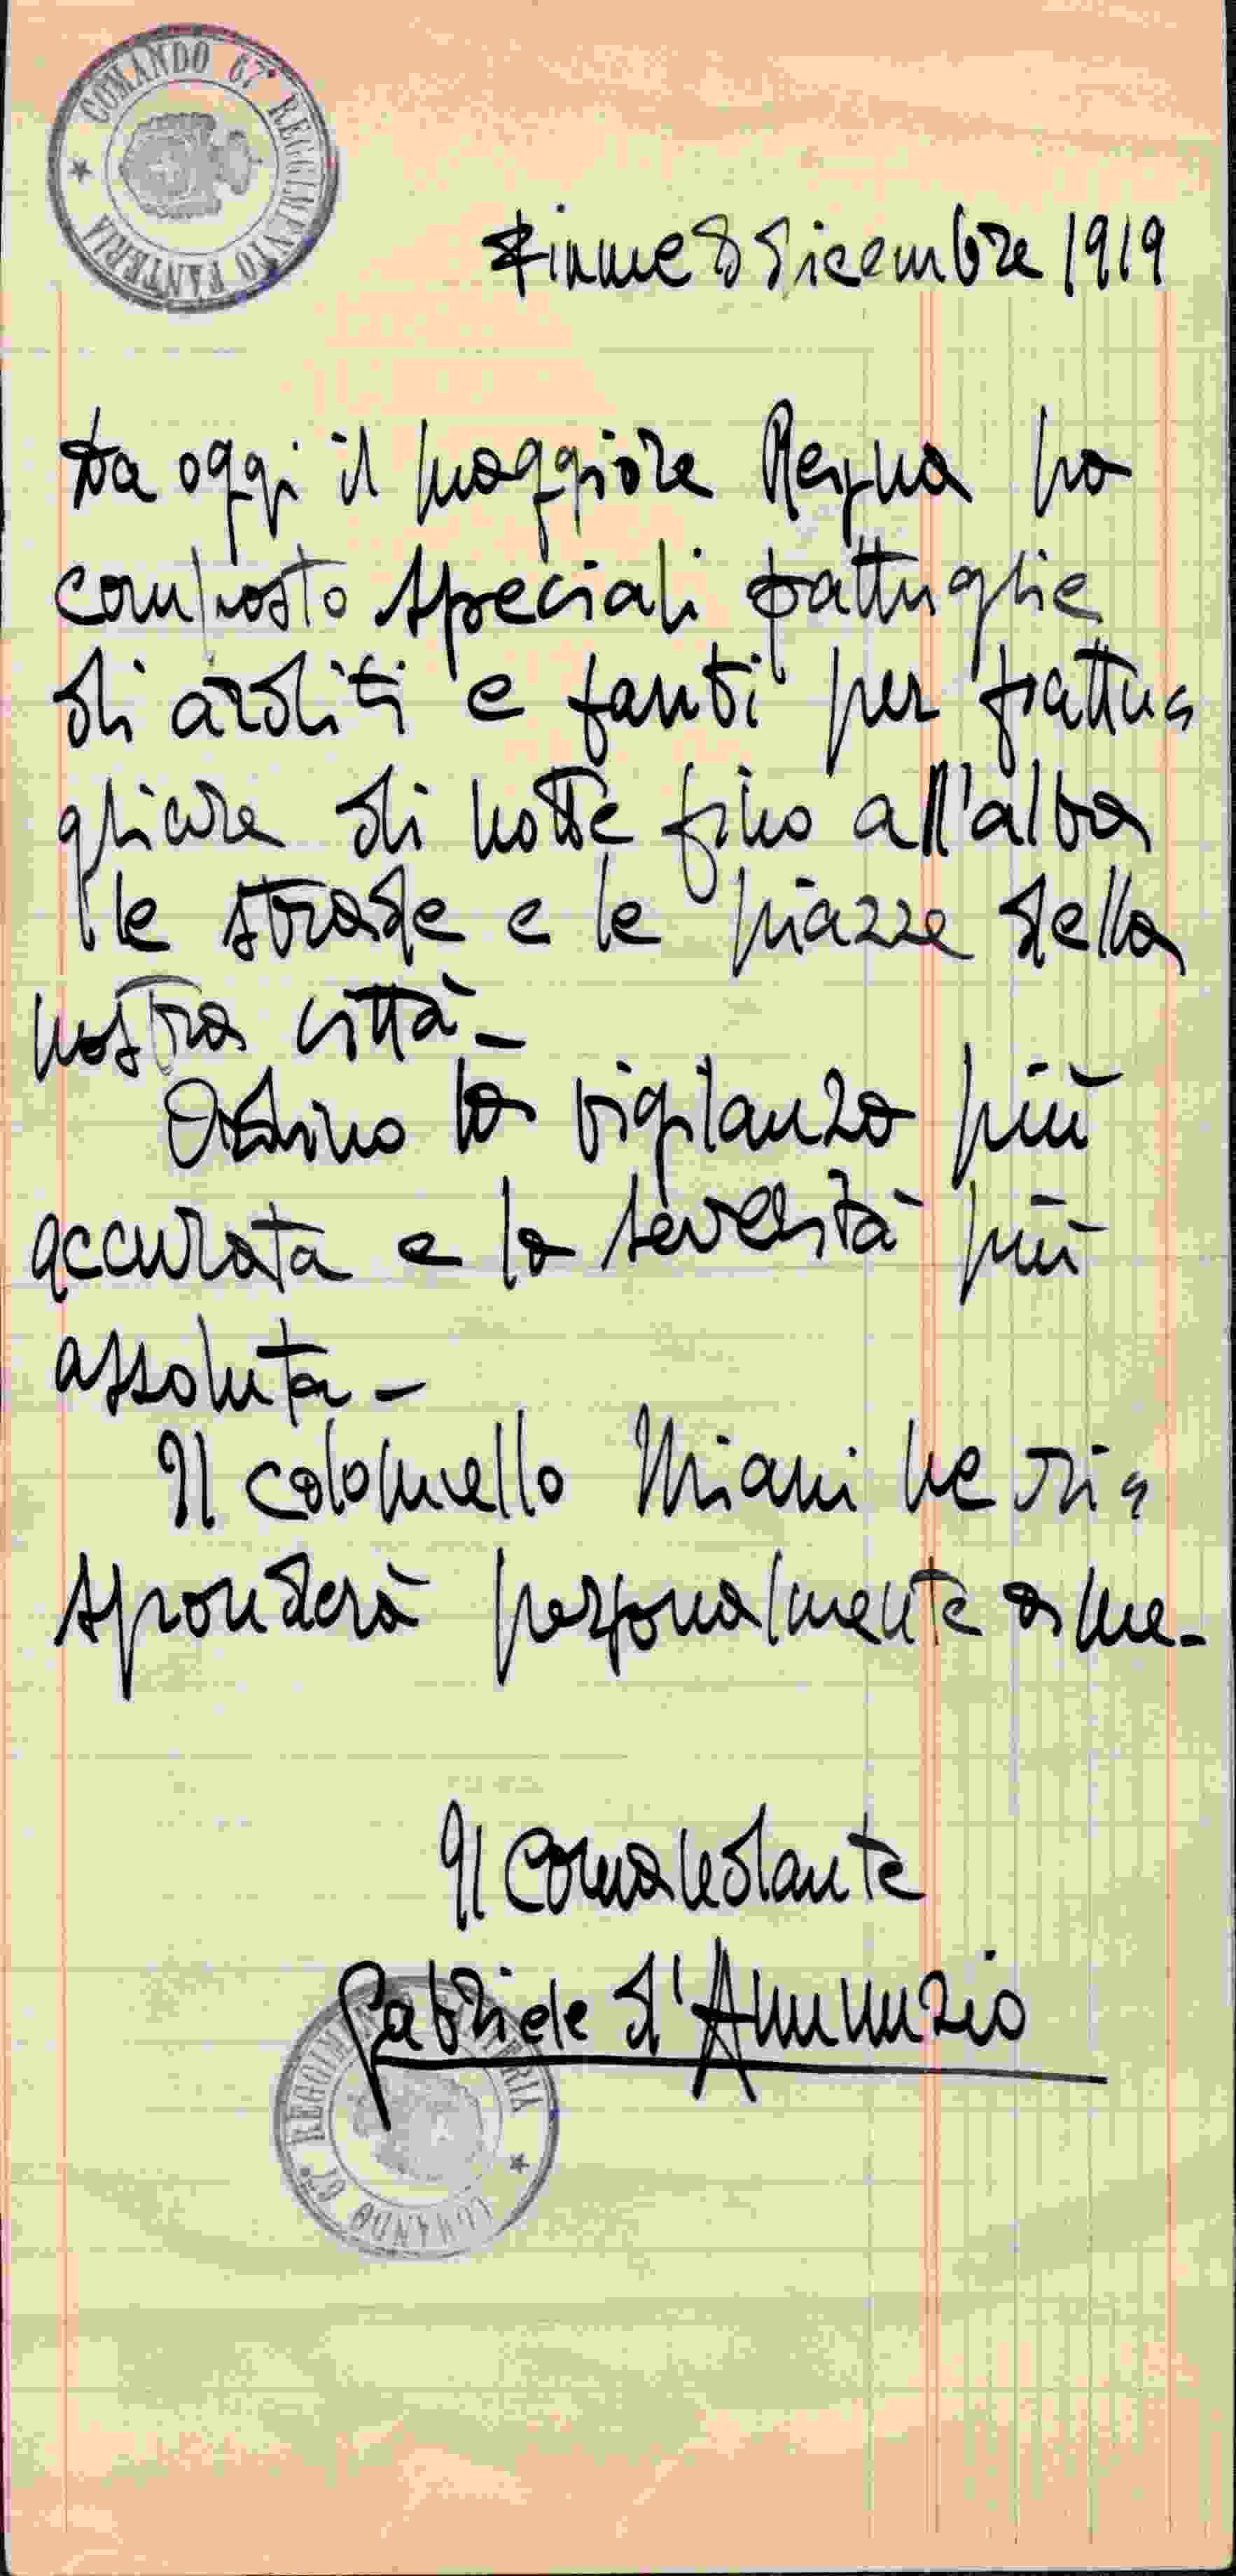 COMANDO 67° REGGIMENTO FANTERIA
Fiume 8 dicembre 1919
Da oggi il maggiore Reyna ha
composto speciali pattuglie
di arditi e fanti per pattu-
gliare di notte fino all'alba
le strade e le piazze della
nostra città-
Ordino la vigilanza più
accurata e la severità più
assoluta-
Il colonnello Miani ne ri-
sponderà personalmente a me-
Il Comandante
Gabriele d'Annunzio
COMANDO 67° REGGIMENTO FANTERIA